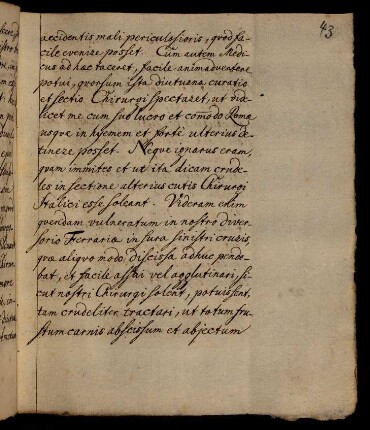 43
accidentis mali periculosioris, quod fa-
cile evenire posset. Cum autem Medi-
cus ad hæc taceret, facile animadvertere
potui, quorsum ista diuturna curatio
et sectio Chirurgi spectaret, ut vide
licet me cum suo lucro et comodo Romæ
usque in hyemem et forte ulterius de-
tinere posset. Neque ignarus eram,
quam immites et ut ita dicam crude-
les in sectione alterius cutis Chirurgi
Italici esse soleant. Videram enim
quendam vulneratum in nostro diver-
sorio Ferrariæ in sura sinistri cruris,
quæ aliquo modo discissa adhuc pende-
bat, et facile assui vel agglutinari, si-
cut nostri Chirurgi solent, potuissent,
tam crudeliter tractari, ut totum fru-
stum carnis abscissum et abjectum